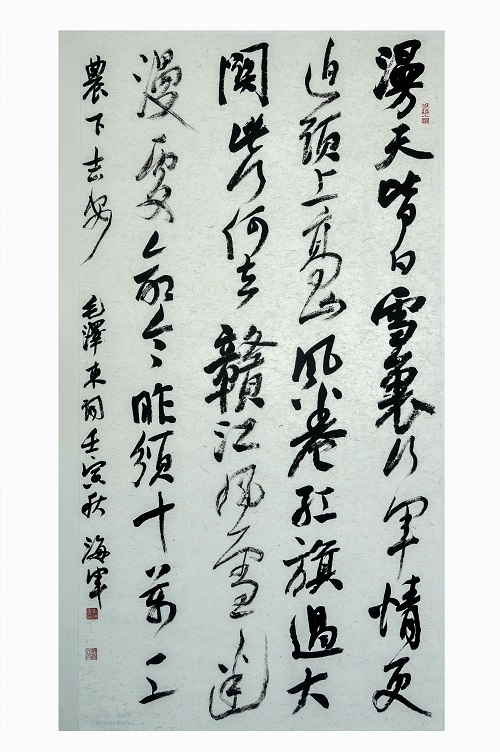 漫天皆白雪裏行軍情更
迫頭上高山風卷紅旗過大
關此行何去贛江風雪迷
漫處命令昨頒十萬工
農下吉安 毛澤東詞壬寅秋 海軍